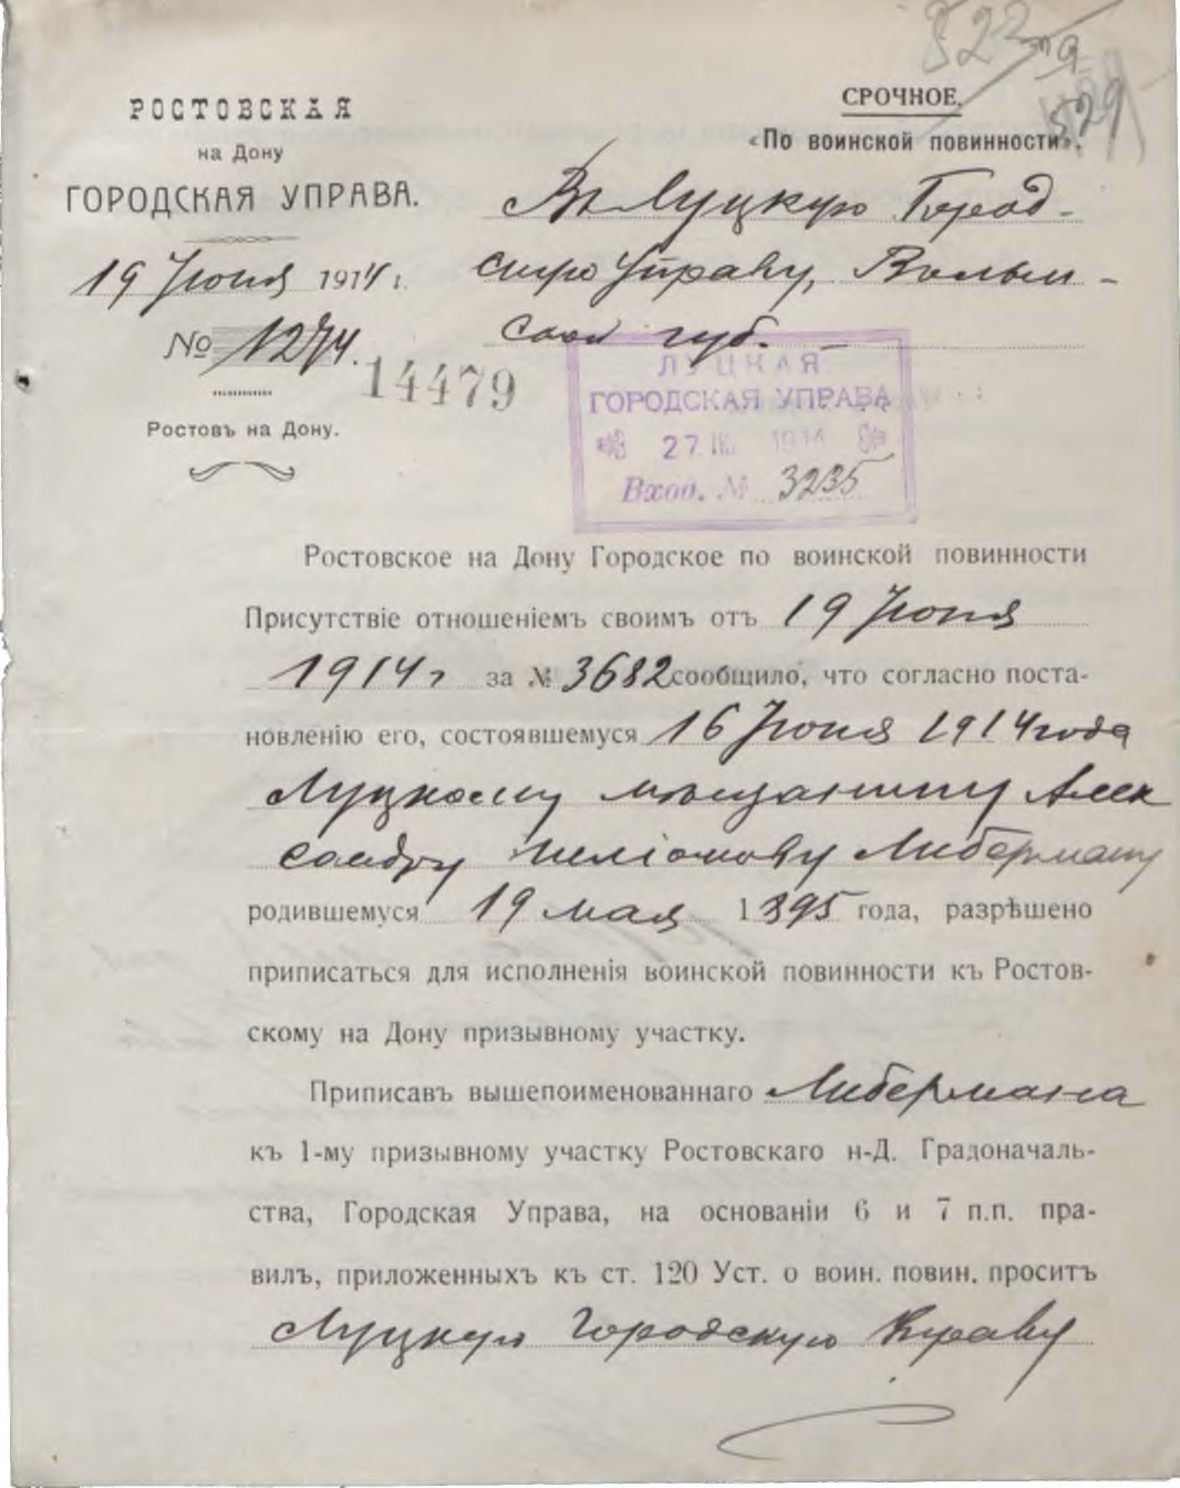 РОСТОВСКАЯ
на Дону
ГОРОДСКАЯ УПРАВА.
19 Іюня 1914 г.
№ 1274.
14479
Ростовъ на Дону.
829
СРОЧНОЕ.
«По воинской повинности».
Въ Луцкую Город-
скую Управу, Волын-
ской губ.
ЛУЦКАЯ
ГОРОДСКАЯ УПРАВА
27 1914
Вход. № 3235
Ростовское на Дону Городское по воинской повинности
Присутствіе отношеніемъ своимъ отъ 19 Іюня
1914 г за № 3682 сообщило, что согласно поста-
новленію его, состоявшемуся 16 Іюня 1914 года
Луцкому мѣщанину Алек
сандру Либерману
родившемуся 19 мая 1895 года, разрѣшено
приписаться для исполненія воинской повинности къ Ростов-
скому на Дону призывному участку.
Приписавъ вышепоименованнаго Либермана
къ 1-му призывному участку Ростовскаго н-Д. Градоначаль-
ства, Городская Управа, на основаніи 6 и 7 п.п. пра-
вилъ, приложенныхъ къ ст. 120 Уст. о воин. повин. проситъ
Луцкую Городскую Управу